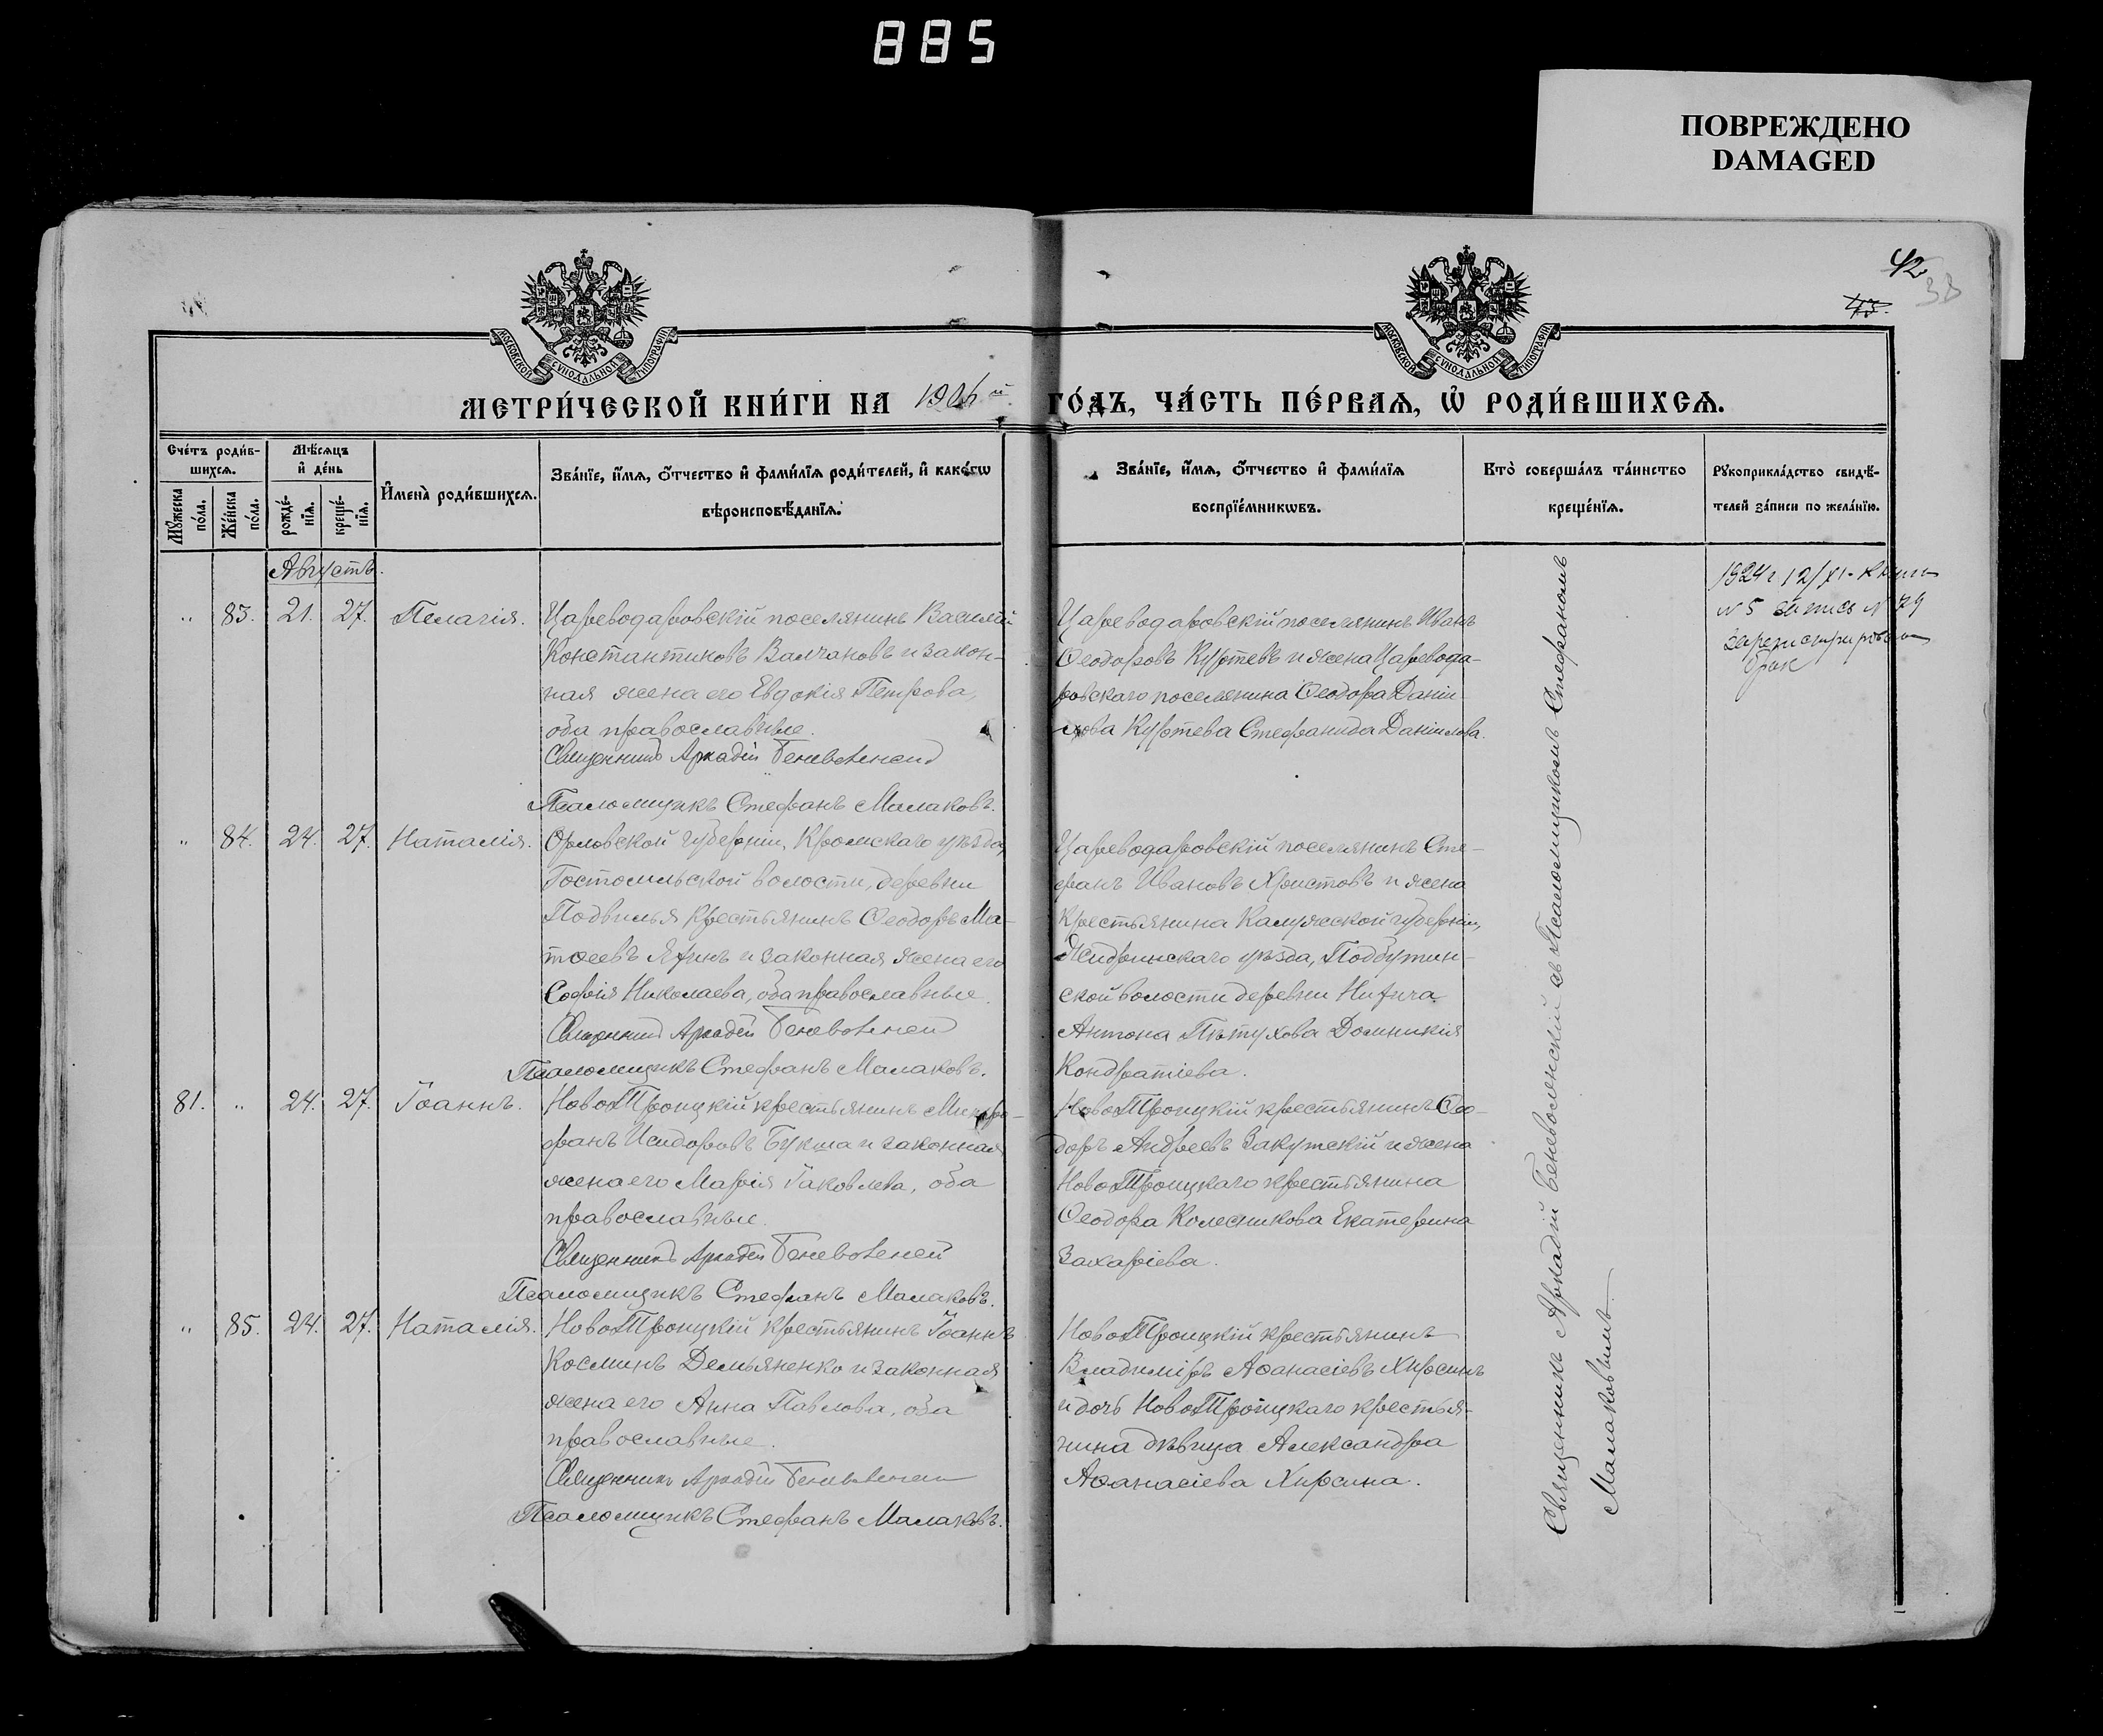 885
ПОВРЕЖДЕНО
DAMAGED
42
38
43.
МОСКОВСКОЙ СѴНОДАЛЬНОЙ ТИПОГРАФІИ
МОСКОВСКОЙ СѴНОДАЛЬНОЙ ТИПОГРАФІИ
МЕТРИ́ЧЕСКОЙ КНИ́ГИ НА 1906й ГО́ДЪ, ЧА́СТЬ ПЕ́РВАѦ, Ѡ҆ РОДИ́ВШИХСѦ.
Сче́тъ роди́в-
шихсѧ.
Мꙋ́жеска по́ла.
Же́нска по́ла.
Мѣ́сѧцъ
и҆ де́нь
рожде́-
нїѧ.
креще́-
нїѧ.
И҆мена̀ роди́вшихсѧ.
Зва́нїе, и҆́мѧ, ѻ҆́тчество и҆ фами́лїѧ роди́телей, и҆ како́гѡ
вѣроисповѣ́данїѧ.
Зва́нїе, и҆́мѧ, ѻ҆́тчество и҆ фами́лїѧ
воспрїе́мникѡвъ.
Кто̀ соверша́лъ та́инство
креще́нїѧ.
Рꙋкоприкла́дство свидѣ́-
телей за́писи по жела́нїю.
Августъ.
„ 83. 21. 27. Пелагія.
Цареводаровскій поселянинъ Василій
Константиновъ Валчановъ и закон-
ная жена его Евдокія Петрова,
оба православные.
Священникъ Аркадій Беневоленскій
Псаломщикъ Стефанъ Малаковъ.
Цареводаровскій поселянинъ Иванъ
Ѳеодоровъ Куртевъ и жена Царевода-
ровскаго поселянина Ѳеодора Даніи-
лова Куртева Стефанида Даніилова.
1924 г 12/XI - книги
№ 5 запись № 79
зарегистрирован
брак
„ 84. 24. 27. Наталія.
Орловской губерніи, Кромскаго уѣзда,
Гостомльской волости, деревни
Подвилья крестьянинъ Ѳеодоръ Ма-
тѳеевъ и законная жена его
Софія Николаева, оба православные.
Священникъ Аркадій Беневоленскій
Псаломщикъ Стефанъ Малаковъ.
Цареводаровскій поселянинъ Сте-
фанъ Ивановъ Христовъ и жена
крестьянина Калужской губерніи,
Жиздринскаго уѣзда, Подбужин-
ской волости деревни
Антона Пѣтухова Домникія
Кондратіева.
81. „ 24. 27. Іоаннъ.
НовоТроицкій крестьянинъ Митро-
фанъ Исидоровъ Букша и законная
жена его Марія Іаковлева, оба
православные.
Священникъ Аркадій Беневоленскій
Псаломщикъ Стефанъ Малаковъ.
НовоТроицкій крестьянинъ Ѳео-
доръ Андреевъ Закутскій и жена
НовоТроицкаго крестьянина
Ѳеодора Колесникова Екатерина
Захаріева.
„ 85. 24. 27. Наталія.
НовоТроицкій крестьянинъ Іоаннъ
Косминъ Демьяненко и законная
жена его Анна Павлова, оба
православные.
Священникъ Аркадій Беневоленскій
Псаломщикъ Стефанъ Малаковъ.
НовоТроицкій крестьянинъ
Владиміръ Аѳанасіевъ Хирсинъ
и дочь НовоТроицкаго крестья-
нина дѣвица Александра
Аѳанасіева Хирсина.
Священникъ Аркадій Беневоленскій съ Псаломщикомъ Стефаномъ
Малаковымъ.